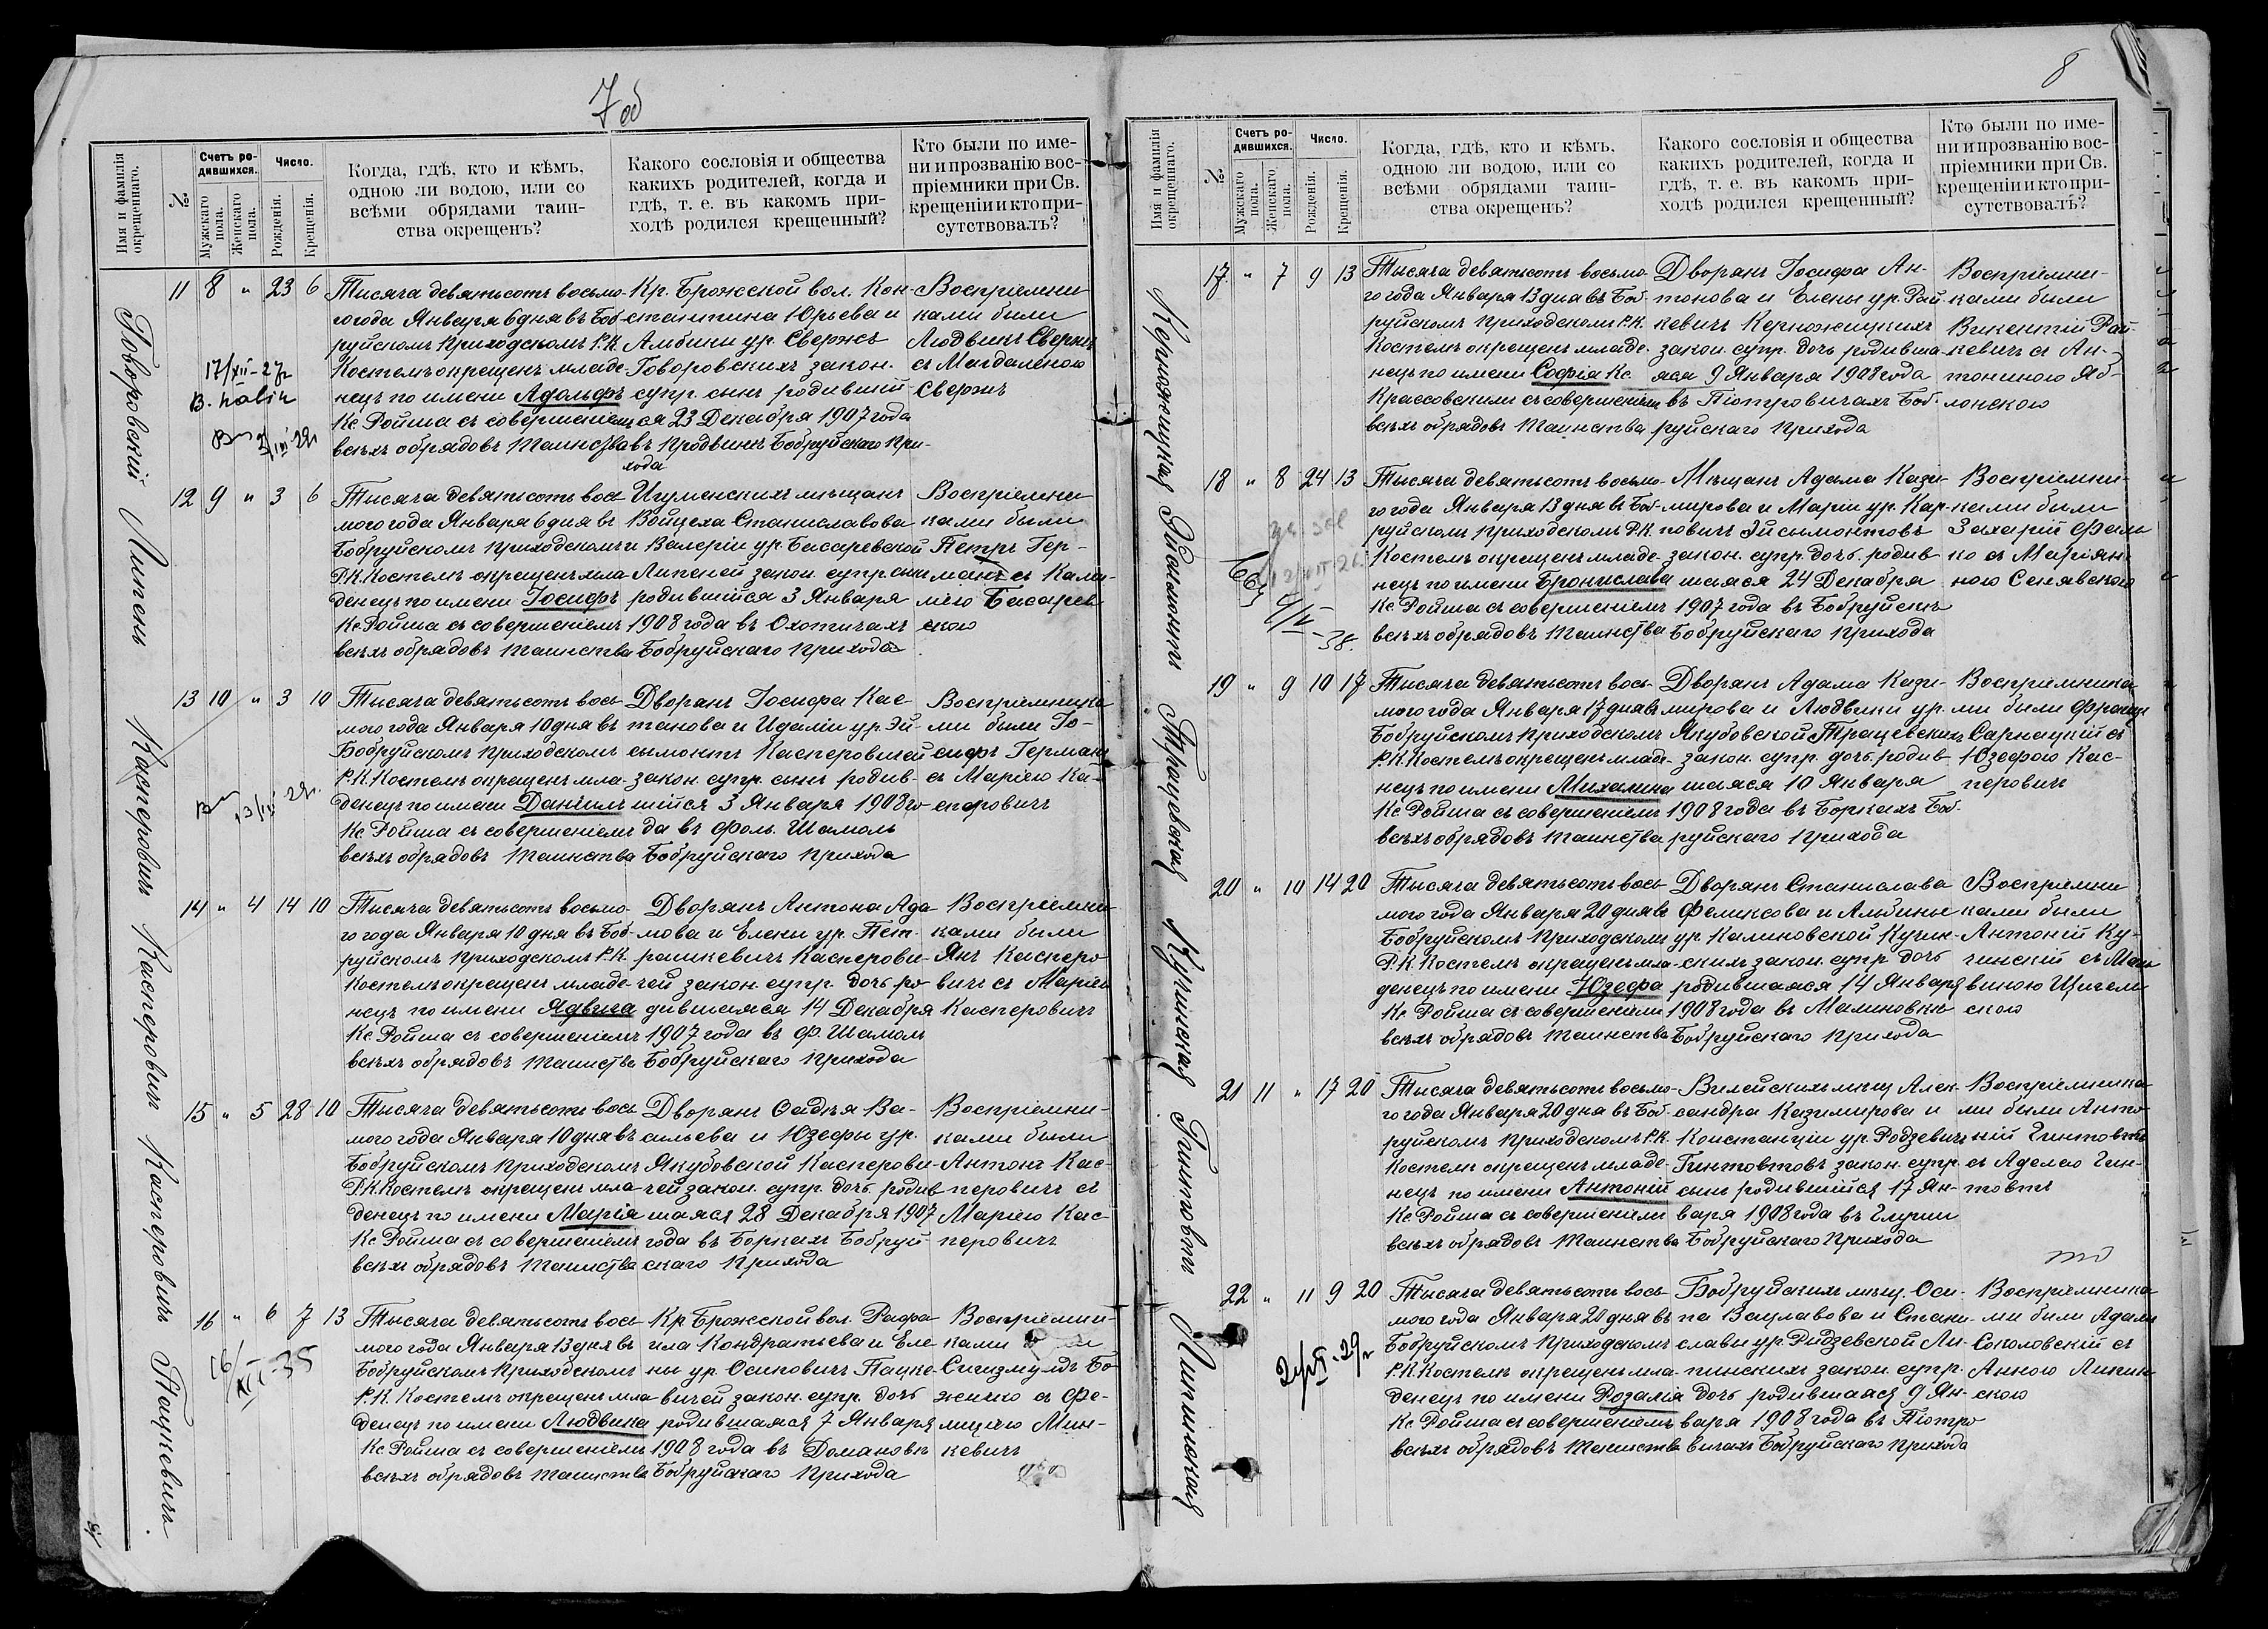 7об
Имя и фамилія окрещеннаго.
№
Счетъ родившихся.
Мужскаго пола.
Женскаго пола.
Число.
Рожденія.
Крещенія.
Когда, гдѣ, кто и кѣмъ,
одною ли водою, или со
всѣми обрядами таин-
ства окрещенъ?
Какого сословія и общества
какихъ родителей, когда и
гдѣ, т. е. въ какомъ при-
ходѣ родился крещенный?
Кто были по име-
ни и прозванію вос-
пріемники при Св.
крещеніи и кто при-
сутствовалъ?
Говоровскій
11 8 " 23 6
Тысяча девятьсотъ восьмо-
го года Января 6 дня въ Боб-
руйскомъ приходскомъ Р.К.
Костелѣ окрещенъ младе-
нецъ по имени Адольфъ
Кс Ройша съ совершеніемъ
всѣхъ обрядовъ Таинства
Кр. Брожской вол. Кон-
стантина Юрьева и
Альбины ур. Свержъ
Говоровскихъ закон.
супр. сынъ родивший-
ся 23 Декабря 1907 года
въ Продвинѣ Бобруйскаго при-
хода
Воспріемни-
ками были
Людвикъ Свержъ
съ Магдаленою
Свержъ
17/XII-27г
Липень
12 9 " 3 6
Тысяча девятьсотъ вось-
мого года Января 6 дня въ
Бобруйскомъ приходскомъ
Р.К. Костелѣ окрещенъ мла-
денецъ по имени Іосифъ
Кс Ройша съ совершеніемъ
всѣхъ обрядовъ таинства
Игуменскихъ мѣщанъ
Войцеха Станиславова
и Валеріи ур. Басаревской
Липеней закон. супр. сынъ
родившійся 3 Января
1908 года въ Охотичахъ
Бобруйскаго прихода
Воспріемни-
ками были
Петръ Гер-
манъ съ Ками-
лею Басарев-
скою
Касперовичъ
13 10 " 3 10
Тысяча девятьсотъ вось-
мого года Января 10 дня въ
Бобруйскомъ приходскомъ
Р.К. Костелѣ окрещенъ мла-
денецъ по имени Даніилъ
Кс Ройша съ совершеніемъ
всѣхъ обрядовъ таинства
Дворянъ Іосифа Кас-
танова и Идаліи ур. Эй-
сымонтъ Касперовичей
закон. супр. сынъ родив-
шійся 3 Января 1908 го-
да въ фоль. Шамоль
Бобруйскаго прихода
Воспріемника-
ми были Іо-
сифъ Германъ
съ Маріею Ка-
сперовичъ
Касперовичъ
14 " 4 14 10
Тысяча девятьсотъ восьмо-
го года Января 10 дня въ Боб-
руйскомъ приходскомъ Р.К.
Костелѣ окрещенъ младе-
нецъ по имени Ядвига
Кс Ройша съ совершеніемъ
всѣхъ обрядовъ таинства
Дворянъ Антона Ада-
мова и Елены ур. Пет-
рашкевичъ Касперови-
чей закон. супр. дочь ро-
дившаяся 14 Декабря
1907 года въ ф. Шамоль
Бобруйскаго прихода
Воспріемни-
ками были
Янъ Касперо-
вичъ съ Маріею
Касперовичъ
Касперовичъ
15 " 5 28 10
Тысяча девятьсотъ вось-
мого года Января 10 дня въ
Бобруйскомъ приходскомъ
Р.К. Костелѣ окрещенъ мла-
денецъ по имени Марія
Кс Ройша съ совершеніемъ
всѣхъ обрядовъ таинства
Дворянъ Фадѣя Ва-
сильева и Юзефы ур.
Якубовской Касперови-
чей закон. супр. дочь родив-
шаяся 28 Декабря 1907
года въ Боркахъ Бобруй-
скаго прихода
Воспріемни-
ками были
Антонъ Кас-
перовичъ съ
Маріею Кас-
перовичъ
Пацкевичъ
16 " 6 7 13
Тысяча девятьсотъ вось-
мого года Января 13 дня въ
Бобруйскомъ приходскомъ
Р.К. Костелѣ окрещенъ мла-
денецъ по имени Людвика
Кс Ройша съ совершеніемъ
всѣхъ обрядовъ таинства
Кр. Брожской вол. Рафа-
ила Кондратьева и Еле-
ны ур. Осиповичъ Пацке-
вичей закон. супр. дочь
родившаяся 7 Января
1908 года въ Домановѣ
Бобруйскаго прихода
Воспріемни-
ками
Сигизмундъ Бо-
жичко съ Фе-
лицією Мин-
кевичъ
8
Имя и фамилія окрещеннаго.
№
Счетъ родившихся.
Мужскаго пола.
Женскаго пола.
Число.
Рожденія.
Крещенія.
Когда, гдѣ, кто и кѣмъ,
одною ли водою, или со
всѣми обрядами таин-
ства окрещенъ?
Какого сословія и общества
какихъ родителей, когда и
гдѣ, т. е. въ какомъ при-
ходѣ родился крещенный?
Кто были по име-
ни и прозванію вос-
пріемники при Св.
крещеніи и кто при-
сутствовалъ?
Керножицкая
17. " 7 9 13
Тысяча девятьсотъ восьмо-
го года Января 13 дня въ Боб-
руйскомъ приходскомъ Р.К.
Костелѣ окрещенъ младе-
нецъ по имени Софія Кс.
Крассовскимъ съ совершеніемъ
всѣхъ обрядовъ таинства
Дворянъ Іосифа Ан-
тонова и Елены ур. Рай-
кевичъ Керножицкихъ
закон. супр. дочь родивша-
яся 9 Января 1908 года
въ Піотровичахъ Боб-
руйскаго прихода
Воспріемни-
ками были
Викентій Рай-
кевичъ съ Ан-
тониною Яб-
лонскою
Эйсымонтъ
18 " 8 24 13
Тысяча девятьсотъ восьмо-
го года Января 13 дня въ Боб-
руйскомъ приходскомъ Р.К.
Костелѣ окрещенъ младе-
нецъ по имени Бронислава
Кс Ройша съ совершеніемъ
всѣхъ обрядовъ таинства
Мѣщанъ Адама Кази-
мирова и Маріи ур. Кар-
повичъ Эйсымонтовъ
закон. супр. дочь родив-
шаяся 24 Декабря
1907 года въ Бобруйскѣ
Бобруйскаго прихода
Воспріемни-
ками были
Захарій
съ Маріан-
ною Сенявскою
Трацевская
19 " 9 10 17
Тысяча девятьсотъ вось-
мого года Января 17 дня въ
Бобруйскомъ приходскомъ
Р.К. Костелѣ окрещенъ младе-
нецъ по имени Михалина
Кс Ройша съ совершеніемъ
всѣхъ обрядовъ таинства
Дворянъ Адама Кази-
мирова и Людвики ур.
Якубовской Трацевскихъ
закон. супр. дочь родив-
шаяся 10 Января
1908 года въ Боркахъ Боб-
руйскаго прихода
Воспріемника-
ми были Францъ
Сарнацкій съ
Юзефою Кас-
перовичъ
Кучинская
20 " 10 14 20
Тысяча девятьсотъ вось-
мого года Января 20 дня въ
Бобруйскомъ приходскомъ
Р.К. Костелѣ окрещенъ мла-
денецъ по имени Юзефа
Кс Ройша съ совершеніемъ
всѣхъ обрядовъ таинства
Дворянъ Станислава
Феликсова и Альбины
ур. Калиновской Кучин-
скихъ закон. супр. дочь
родившаяся 14 Января
1908 года въ Малиновкѣ
Бобруйскаго прихода
Воспріемни-
ками были
Антоній Ку-
чинскій съ
Гинтовтъ
21 11 " 17 20
Тысяча девятьсотъ восьмо-
го года Января 20 дна въ Боб-
руйскомъ приходскомъ Р.К.
Костелѣ окрещенъ младе-
нецъ по имени Антоній
Кс Ройша съ совершеніемъ
всѣхъ обрядовъ таинства
Вилейскихъ мѣщ. Алек-
сандра Казимирова и
Констанціи ур. Родзевичъ
Гинтовтовъ закон. супр.
сынъ родившійся 17 Ян-
варя 1908 года въ Глуши
Бобруйскаго Прихода
Воспріемника-
ми были Анто-
ній Гинтовтъ
съ Аделею Гин-
товтъ
Липинская
22 " 11 9 20
Тысяча девятьсотъ вось-
мого года Января 20 дня въ
Бобруйскомъ приходскомъ
Р.К. Костелѣ окрещенъ мла-
денецъ по имени Розалія
Кс Ройша съ совершеніемъ
всѣхъ обрядовъ таинства
Бобруйскихъ мѣщ. Оси-
па Вацлавова и Стани-
славы ур. Ридзевской Ли-
пинскихъ закон. супр.
дочь родившаяся 9 Ян-
варя 1908 года въ Піотро-
вичахъ Бобруйскаго прихода
Воспріемника-
ми были Адамъ
Соколовскій съ
Анною Липин-
скою